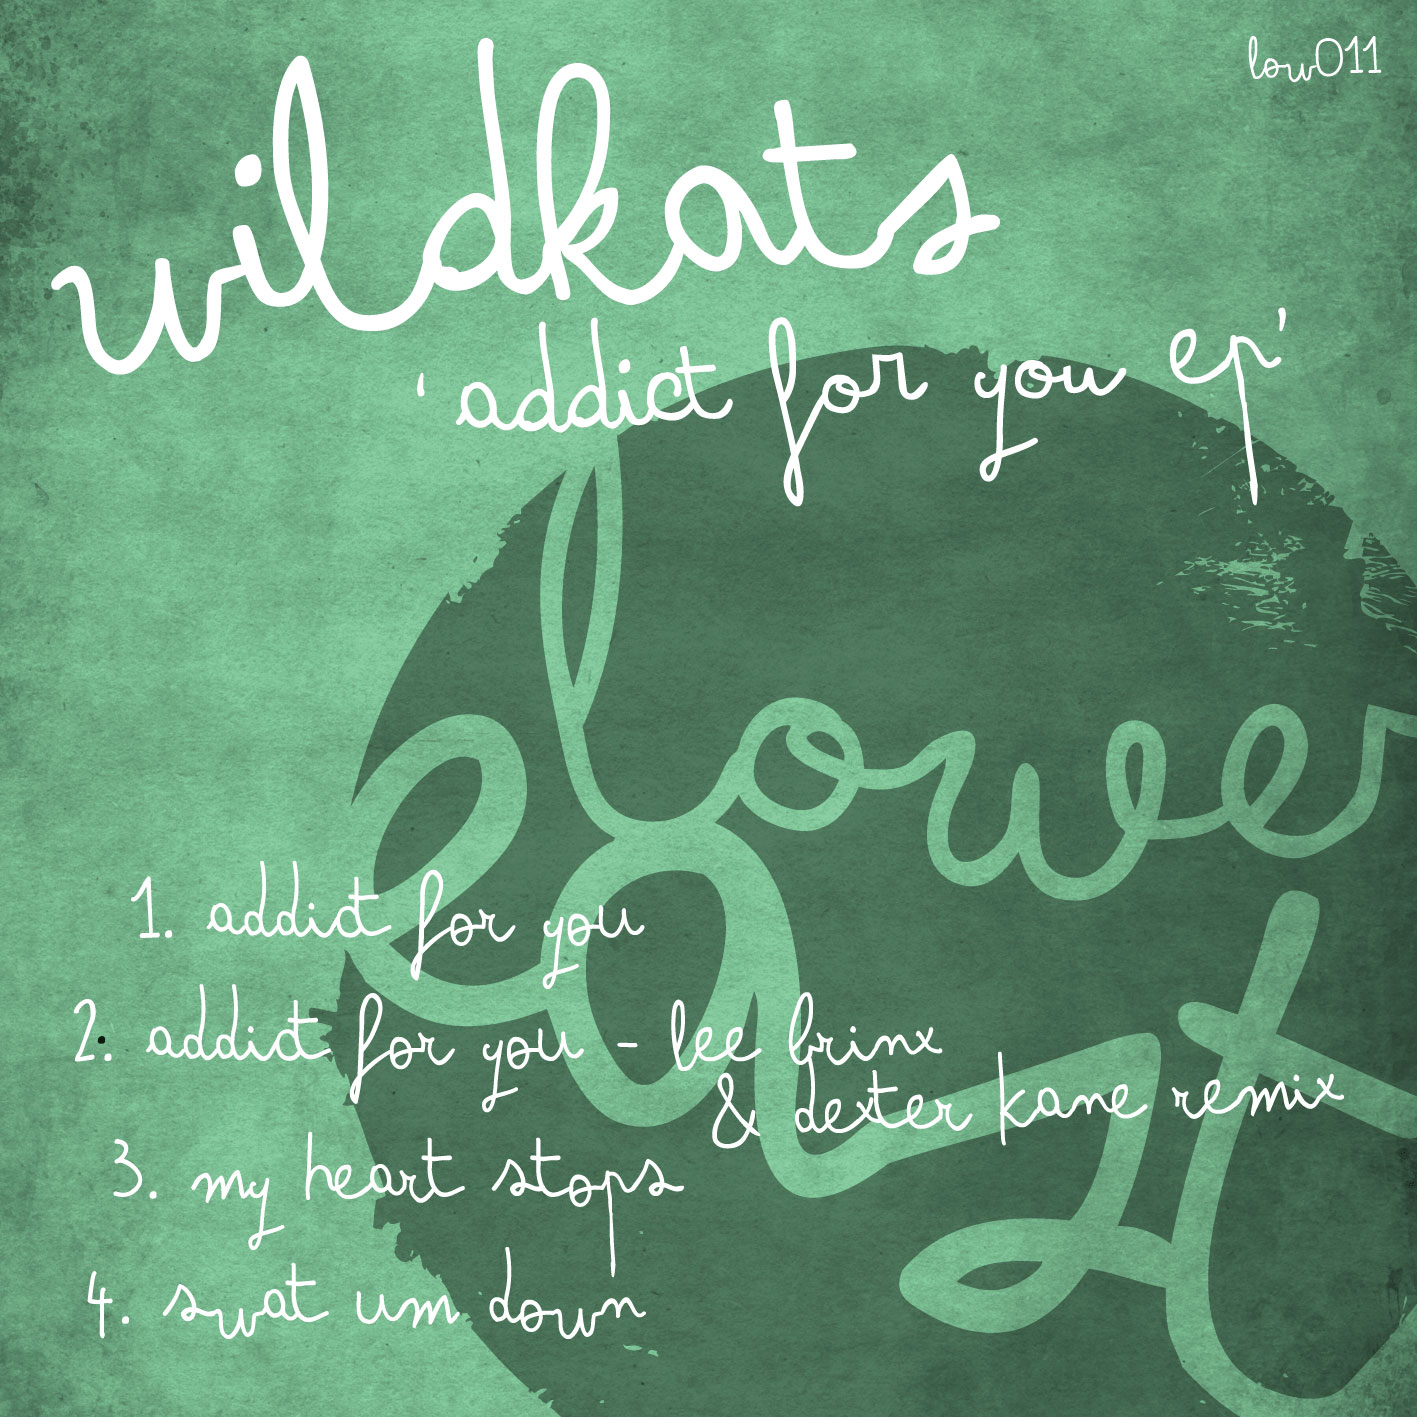 low011
wildkats
'addict for you ep'
lower
east
1. addict for you
2. addict for you - lee brinx
& dexter kane remix
3. my heart stops
4. swat um down